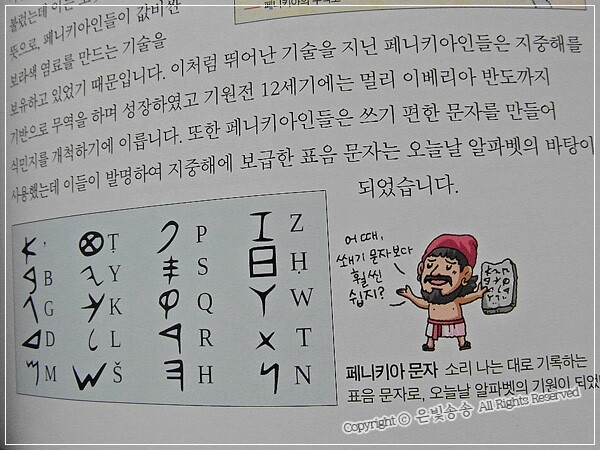 페니키아의 무역로
불렸는데 이는
뜻으로, 페니키아인들이 값비싼
보라색 염료를 만드는 기술을
보유하고 있었기 때문입니다. 이처럼 뛰어난 기술을 지닌 페니키아인들은 지중해를
기반으로 무역을 하며 성장하였고 기원전 12세기에는 멀리 이베리아 반도까지
식민지를 개척하기에 이릅니다. 또한 페니키아인들은 쓰기 편한 문자를 만들어
사용했는데 이들이 발명하여 지중해에 보급한 표음 문자는 오늘날 알파벳의 바탕이
되었습니다.
’ Ṭ P Z
B Y S Ḥ
G K Q W
D L R T
M Š H N
어때,
쐐기 문자보다
훨씬
쉽지?
페니키아 문자 소리 나는 대로 기록하는
표음 문자로, 오늘날 알파벳의 기원이 되었
Copyright © 은빛송송 All Rights Reserved